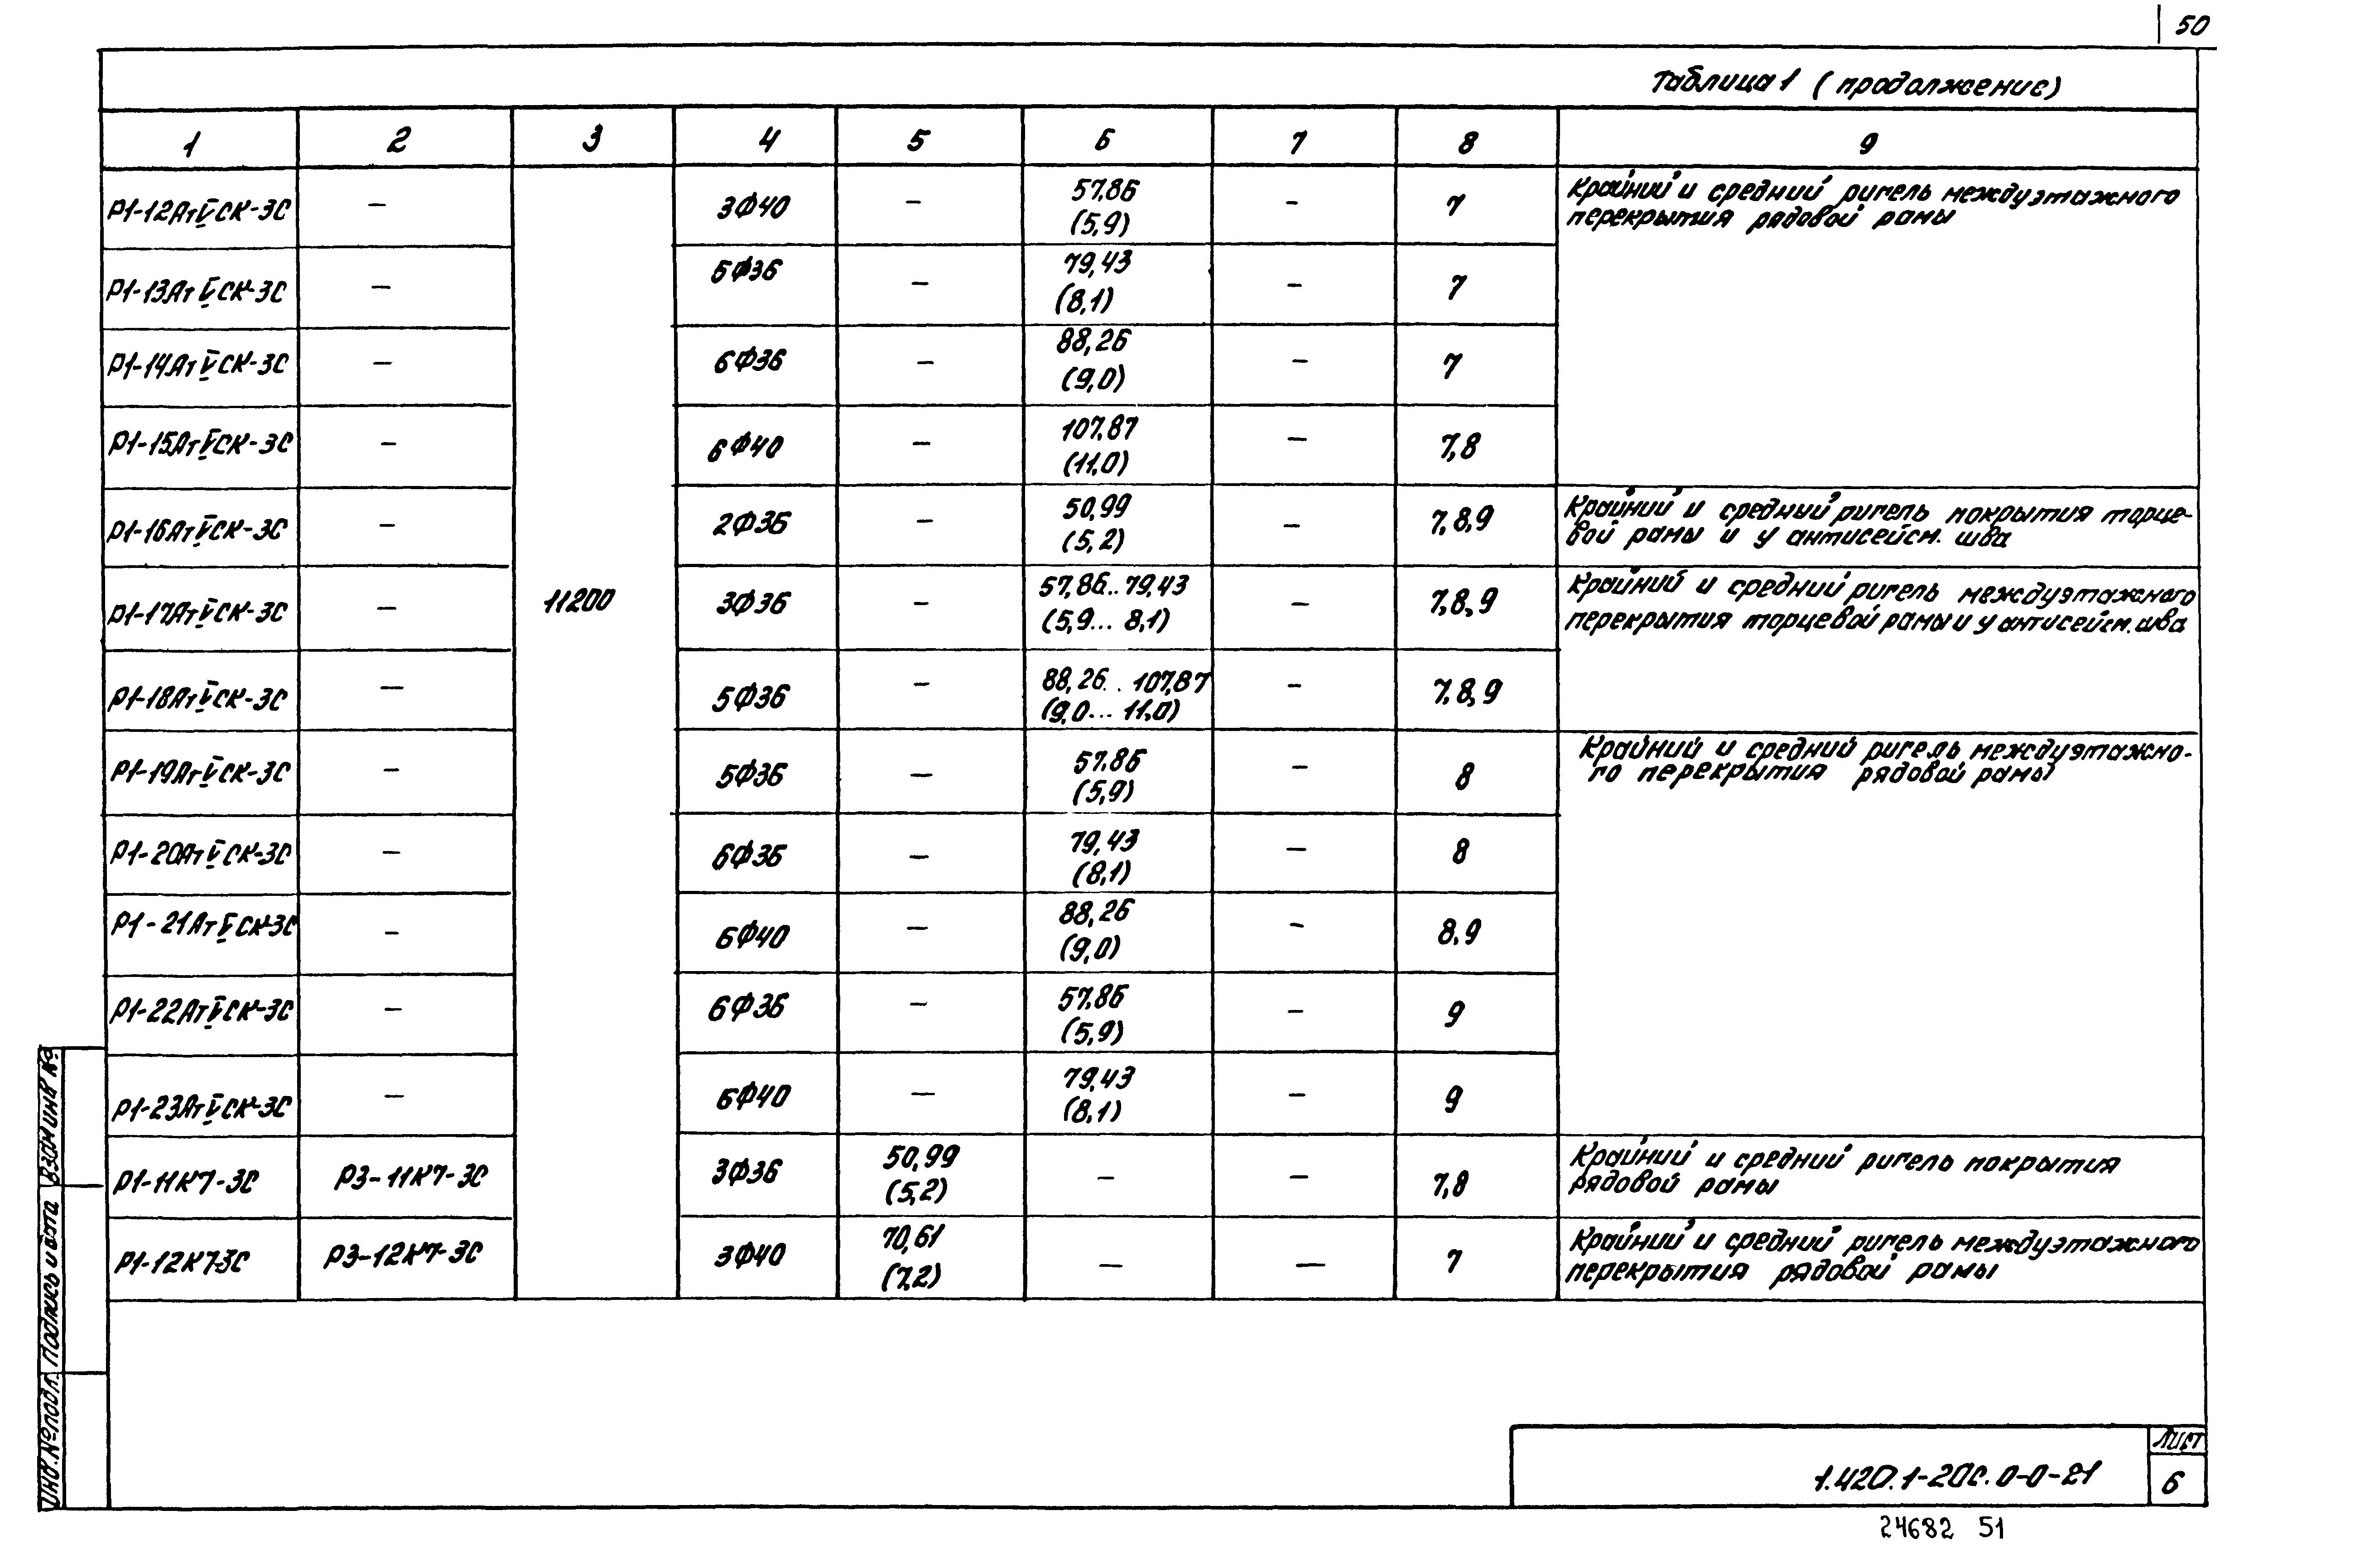 50
Таблица 1 (продолжение)
1 2 3 4 5 6 7 8 9
Р1-12АтVСК-3С — 3Ф40 — 57,86 (5,9) — 7 Крайний и средний ригель междуэтажного
перекрытия рядовой рамы
Р1-13АтVСК-3С — 5Ф36 — 79,43 (8,1) — 7
Р1-14АтVСК-3С — 6Ф36 — 88,26 (9,0) — 7
Р1-15АтVСК-3С — 6Ф40 — 107,87 (11,0) — 7,8
Р1-16АтVСК-3С — 2Ф36 — 50,99 (5,2) — 7,8,9 Крайний и средный ригель покрытия торце-
вой рамы и у антисейсм. шва
Р1-17АтVСК-3С — 11200 3Ф36 — 57,86..79,43 (5,9... 8,1) — 7,8,9 Крайний и средний ригель междуэтажного
перекрытия торцевой рамы и у антисейсм. шва
Р1-18АтVСК-3С — 5Ф36 — 88,26..107,87 (9,0... 11,0) — 7,8,9
Р1-19АтVСК-3С — 5Ф36 — 57.86 (5,9) — 8 Крайний и средний ригель междуэтажно-
го перекрытия рядовой рамы
Р1-20АтVСК-3С — 6Ф36 — 79,43 (8,1) — 8
Р1-21АтVСК-3С — 6Ф40 — 88,26 (9,0) — 8,9
Р1-22АтVСК-3С — 6Ф36 — 57,86 (5,9) — 9
Р1-23АтVСК-3С — 6Ф40 — 79,43 (8,1) — 9
Р1-11К7-3С Р3-11К7-3С 3Ф36 50,99 (5,2) — — 7,8 Крайний и средний ригель покрытия
рядовой рамы
Р1-12К7-3С Р3-12К7-3С 3Ф40 70,61 (7,2) — — 7 Крайний и средний ригель междуэтажного
перекрытия рядовой рамы
Взам инв №
Подпись и дата
Инв.№подл.
1.420.1-20С.0-0-21
Лист
6
24682 51